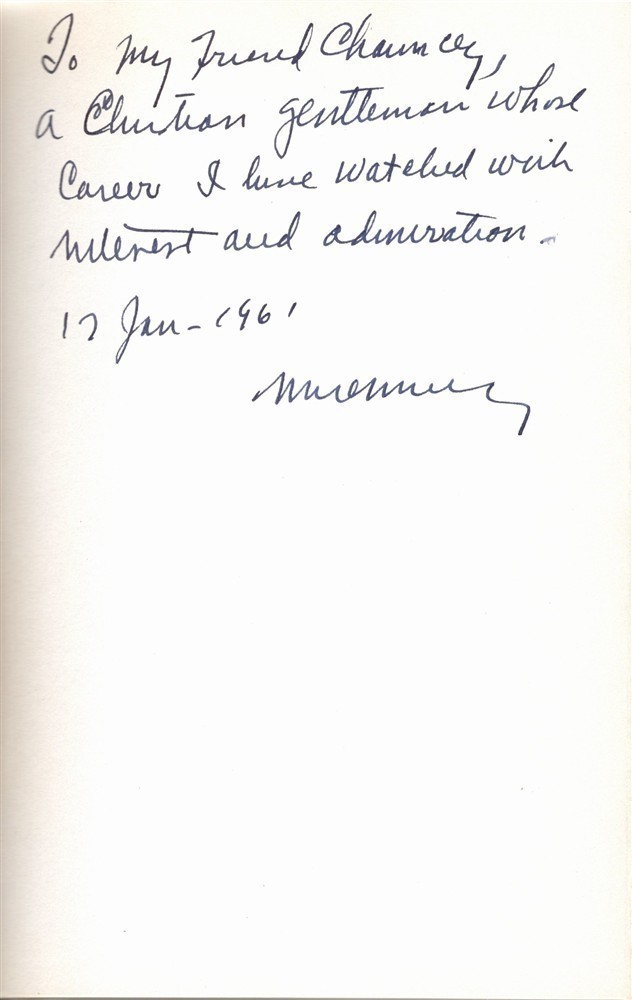 To My Friend Chauncey,
a Christian gentleman whose
Career I have watched with
interest and admiration.
17 Jan - 1961